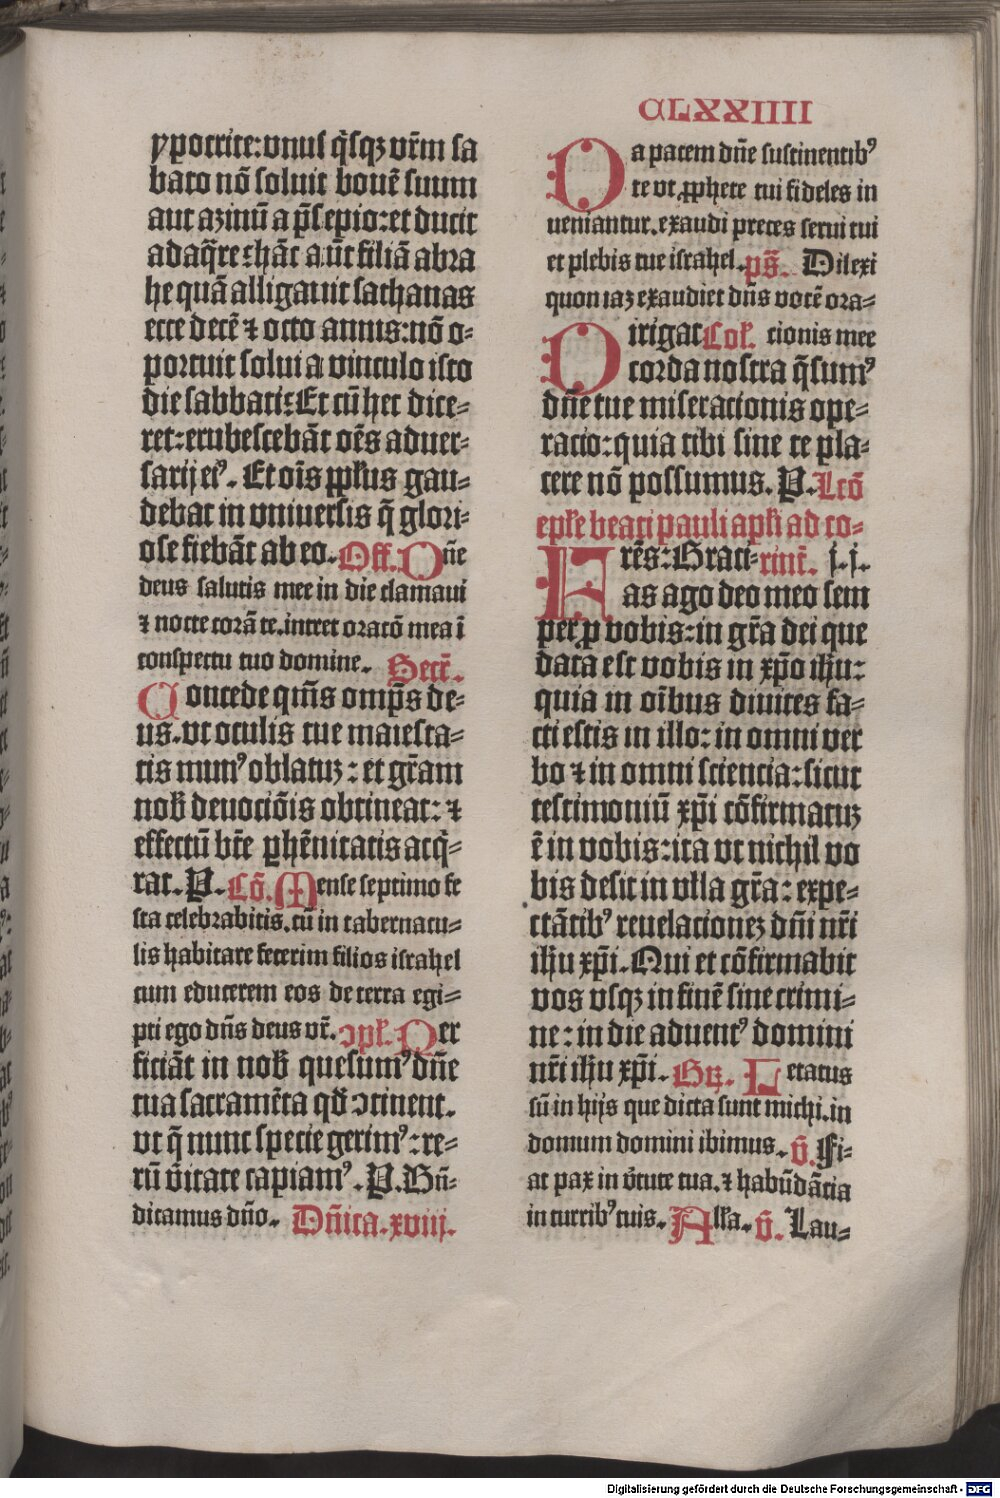 CLXXIIII
ypocrite: vnusq̄sqȝ vr̄m sa
bato nō soluit bouē suum
aut azinū a p̄sepio: et ducit
adaq̄re: hāc aūt filiā abra
he quā alligauit sathanas
ecce decē ⁊ octo annis: nō o⸗
portuit solui a vinculo isto
die sabbati: Et cū hec dice⸗
ret: erubescebāt oēs aduer⸗
sarij eiꝰ. Et oīs pp̄lus gau⸗
debat in vniuersis q̄ glori⸗
ose fiebāt ab eo. Off. Dn̄e
deus salutis mee in die clamaui
⁊ nocte corā te. intret oracō mea ī
conspectu tuo domine. Secr̄.
Concede qm̄s omp̄s de⸗
us. vt oculis tue maiesta⸗
tis munꝰ oblatuȝ: et gr̄am
nob̄ deuociōis obtineat: ⁊
effectū bt̄e ꝑhēnitatis acq̄⸗
rat. P. Cō. Mense septimo fe
sta celebrabitis. cū in tabernacu⸗
lis habitare fecerim filios israhel
cum educerem eos de terra egi⸗
pti ego dn̄s deus vr̄. ↄpl̄. Per
ficiāt in nob̄ quesumꝰ dn̄e
tua sacramēta qd̄ ↄtinent.
vt q̄ nunc specie gerimꝰ: re⸗
rū v̄itate capiamꝰ. P. Bn̄⸗
dicamus dn̄o. Dn̄ica. xviij.
Da pacem dn̄e sustinentibꝰ
te vt ꝓphete tui fideles in
ueniantur. exaudi preces serui tui
et plebis tue israhel. ps̄. Dilexi
quoniaȝ exaudiet dn̄s vocē ora⸗
Dirigat Col̄. cionis mee
corda nostra q̄sumꝰ
dn̄e tue miseracionis ope⸗
racio: quia tibi sine te pla⸗
cere nō possumus. P. Lc̄ō
epl̄e beati pauli apl̄i ad co⸗
Frēs: Graci⸗ rint̄. j. j.
as ago deo meo sem
per ꝓ vobis: in gr̄a dei que
data est vobis in xp̄o ih̄u:
quia in oībus diuites fa⸗
cti estis in illo: in omni ver
bo ⁊ in omni sciencia: sicut
testimoniū xp̄i cōfirmatuȝ
ē in vobis: ita vt nichil vo
bis desit in vlla gr̄a: expe⸗
ctātibꝰ reuelacioneȝ dn̄i nr̄i
ih̄u xp̄i. Qui et cōfirmabit
vos vsqȝ in finē sine crimi⸗
ne: in die aduentꝰ domini
nr̄i ih̄u xp̄i. Gr̄. Letatus
sū in hijs que dicta sunt michi. in
domum domini ibimus. v̄. Fi⸗
at pax in v̄tute tua. ⁊ habūdācia
in turribꝰ tuis. All̄a. v̄. Lau⸗
Digitalisierung gefördert durch die Deutsche Forschungsgemeinschaft - DFG